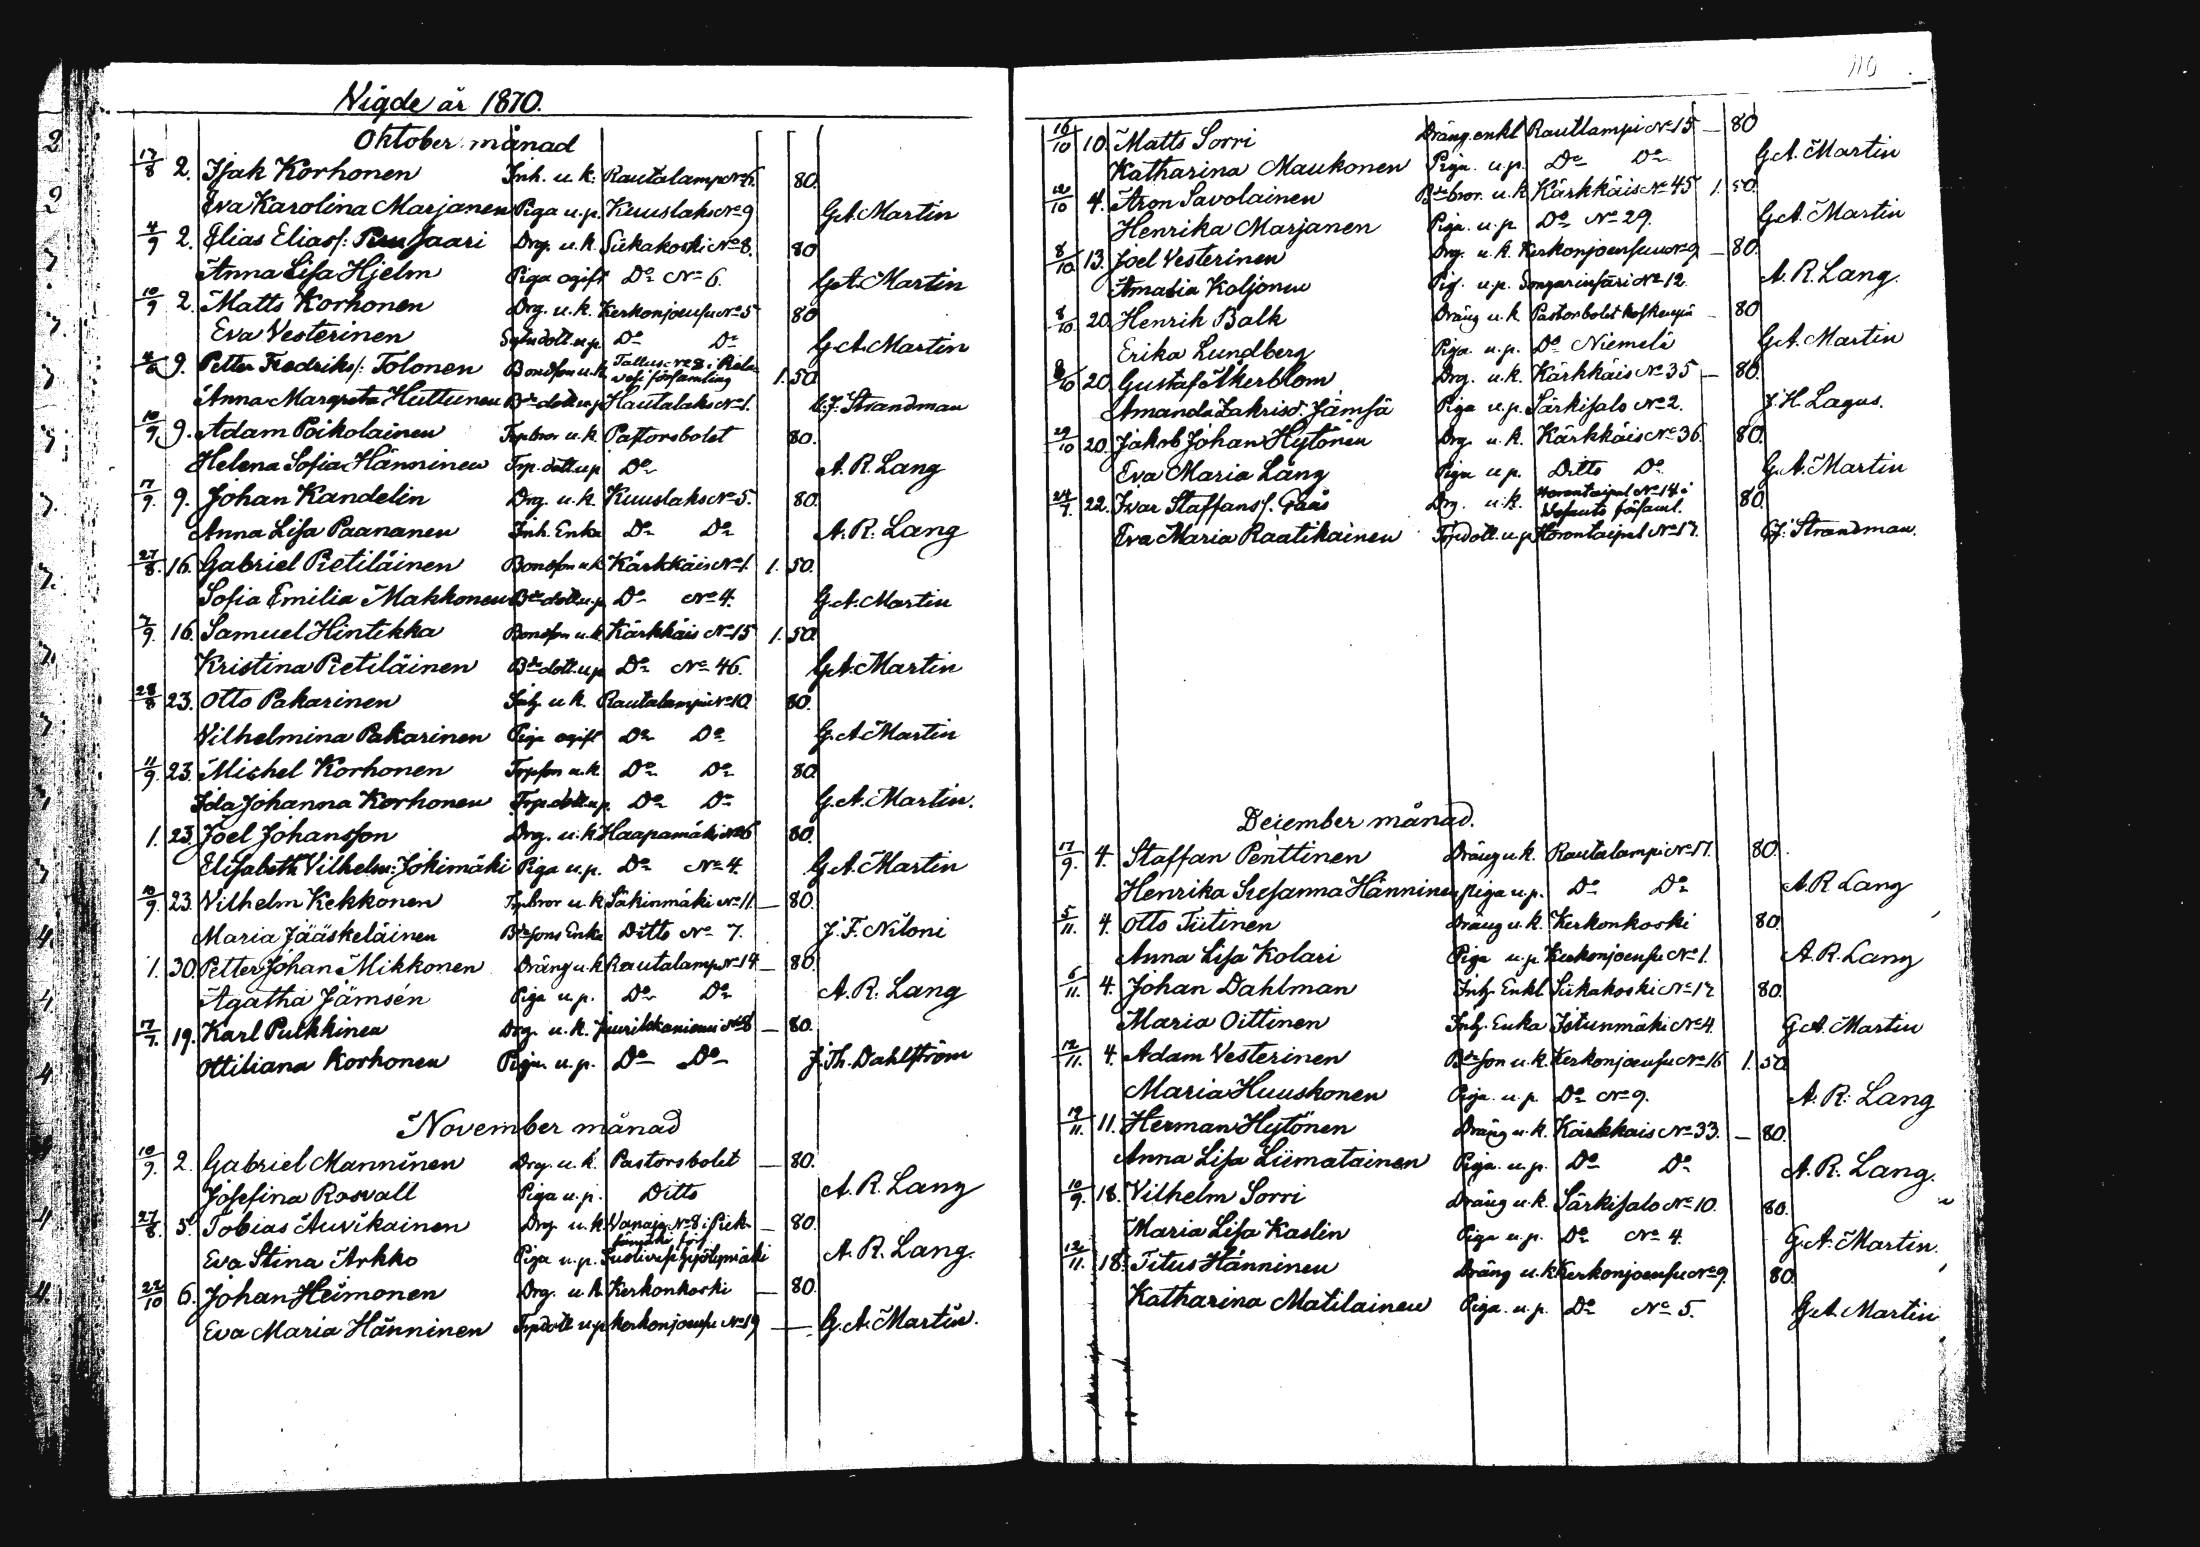 Vigde år 1870.
Oktober månad
17/8 2. Isak Korhonen Inh. u. k. Rautalampi No 6. 80.
Eva Karolina Marjanen Piga u. p. Kuuslaks No 9 G. A. Martin
4/9 2. Elias Eliass: Ruusaari Drg. u. k. Siikakoski No 8. 80
Anna Lisa Hjelm Piga ogift Do No 6. G. A. Martin
10/9 2. Matts Korhonen Drg. u. k. Kerkonjoensu No 5 80
Eva Vesterinen dott. u. p. Do Do G. A. Martin
9. Petter Fredriks: Tolonen Bondson u. k. Tallus No 8 i Riela-
vesi församling 1. 50
Anna Margreta Huttunen Bde dott. u. p. Hautalaks No 1. C. J. Strandman
10/9 9. Adam Poikolainen Trp. bror u. k. Pastorsbolet 80.
Helena Sofia Hänninen Trp. dott. u. p. Do A. R. Lang
7/9. 9. Johan Kandelin Drg. u. k. Kuuslaks No 5. 80.
Anna Lisa Paananen Inh. Enka Do Do A. R. Lang
27/8. 16. Gabriel Pietiläinen Bondson u. k. Kärkkäis No 1. 1. 50.
Sofia Emilia Makkonen Bde dott. u. p. Do No 4. G. A. Martin
7/9. 16. Samuel Hintikka Bondson u. k. Kärkkäis No 15 1. 50.
Kristina Pietiläinen Bde dott. u. p. Do No 46. G. A. Martin
28/8 23. Otto Pakarinen Inh. u. k. Rautalampi No 10 80.
Vilhelmina Pakarinen Piga ogift Do Do G. A. Martin
11/9. 23. Michel Korhonen Trp. son u. k. Do Do 80.
Ida Johanna Korhonen Trp. dott. u. p. Do Do G. A. Martin.
1. 23. Joel Johansson Drg. u. k. Haapamäki No 6 80.
Elisabeth Vilhelm: Jokimäki Piga u. p. Do No 4. G. A. Martin
10/9. 23. Vilhelm Kekkonen Trp. bror u. k. Säkinmäki No 11 — 80.
Maria Jääskeläinen Bde sons Enka Ditto No 7. J. F. Niloni
1. 30. Petter Johan Mikkonen Dräng u. k. Rautalamp. No 14 — 80.
Agatha Jämsén Piga u. p. Do Do A. R. Lang
7/7. 19. Karl Pulkkinen Drg. u. k. No 8 — 80.
Ottiliana Korhonen Piga. u. p. Do Do J. Th. Dahlström
November månad
10/9. 2. Gabriel Manninen Drg. u. k. Pastorsbolet — 80.
Josefina Rosvall Piga u. p. Ditto A. R. Lang
27/8. 5. Tobias Auvikainen Drg. u. k. Vanaja No 8 i Piek-
sämäki förs. — 80.
Eva Stina Arkko Piga u. p. A. R. Lang.
22/10 6. Johan Heimonen Drg. u. k. Kerkonkoski — 80.
Eva Maria Hänninen Trp. dott. u. p. Kerkonjoensu No 19 — G. A. Martin.
110
16/10 10. Matts Sorri Dräng. enkl. Rautlampi No 15 — 80
Katharina Maukonen Piga. u. p. Do Do G. A. Martin
12/10 4. Aron Savolainen Bde bror. u. k. Kärkkäis No 45 1. 50.
Henrika Marjanen Piga. u. p. Do No 29. G. A. Martin
8/10. 13. Joel Vesterinen Drg. u. k. Kerkonjoensuu No 9 — 80.
Amalia Koljonen Pig. u. p. Songarinsaari No 12. A. R. Lang.
8/10. 20. Henrik Balk Dräng u. k. Pastorsbolet — 80
Erika Lundberg Piga. u. p. Do Niemelä G. A. Martin
8/10 20. Gustaf Åkerblom Drg. u. k. Kärkkäis No 35 — 80.
Amanda Zakrisd. Jämsä Piga u. p. Särkisalo No 2. J. H. Lagus.
29/10 20. Jakob Johan Hytönen Drg. u. k. Kärkkäis No 36. 80.
Eva Maria Lång Piga u. p. Ditto Do G. A. Martin
24/7. 22. Ivar Staffans. Paas Drg. u. k. Horontaipal No 14 i
församl. 80.
Eva Maria Raatikainen Trp. dott. u. p. Horontaipal No 17. C. J. Strandman.
December månad.
17/9. 4. Staffan Penttinen Dräng u. k. Rautalampi No 17. 80.
Henrika Susanna Hänninen Piga u. p. Do Do A. R. Lang
5/11. 4. Otto Tiitinen Dräng u. k. Kerkonkoski 80.
Anna Lisa Kolari Piga u. p. Kerkonjoensu No 1. A. R. Lang
6/11. 4. Johan Dahlman Inh. Enkl. Siikakoski No 17 80.
Maria Oittinen Inh. Enka Istunmäki No 4. G. A. Martin
12/11. 4. Adam Vesterinen Bde son u. k. Kerkonjoensu No 16 1. 50.
Maria Huuskonen Piga. u. p. Do No 9. A. R. Lang
19/11. 11. Herman Hytönen Dräng u. k. Kärkkais No 33. — 80.
Anna Lisa Liimatainen Piga. u. p. Do Do A. R. Lang.
10/9. 18. Vilhelm Sorri Dräng u. k. Särkisalo No 10. 80.
Maria Lisa Kaslin Piga u. p. Do No 4. G. A. Martin.
12/11. 18. Titus Hänninen Dräng u. k. Kerkonjoensu No 9. 80.
Katharina Matilainen Piga. u. p. Do No 5. G. A. Martin